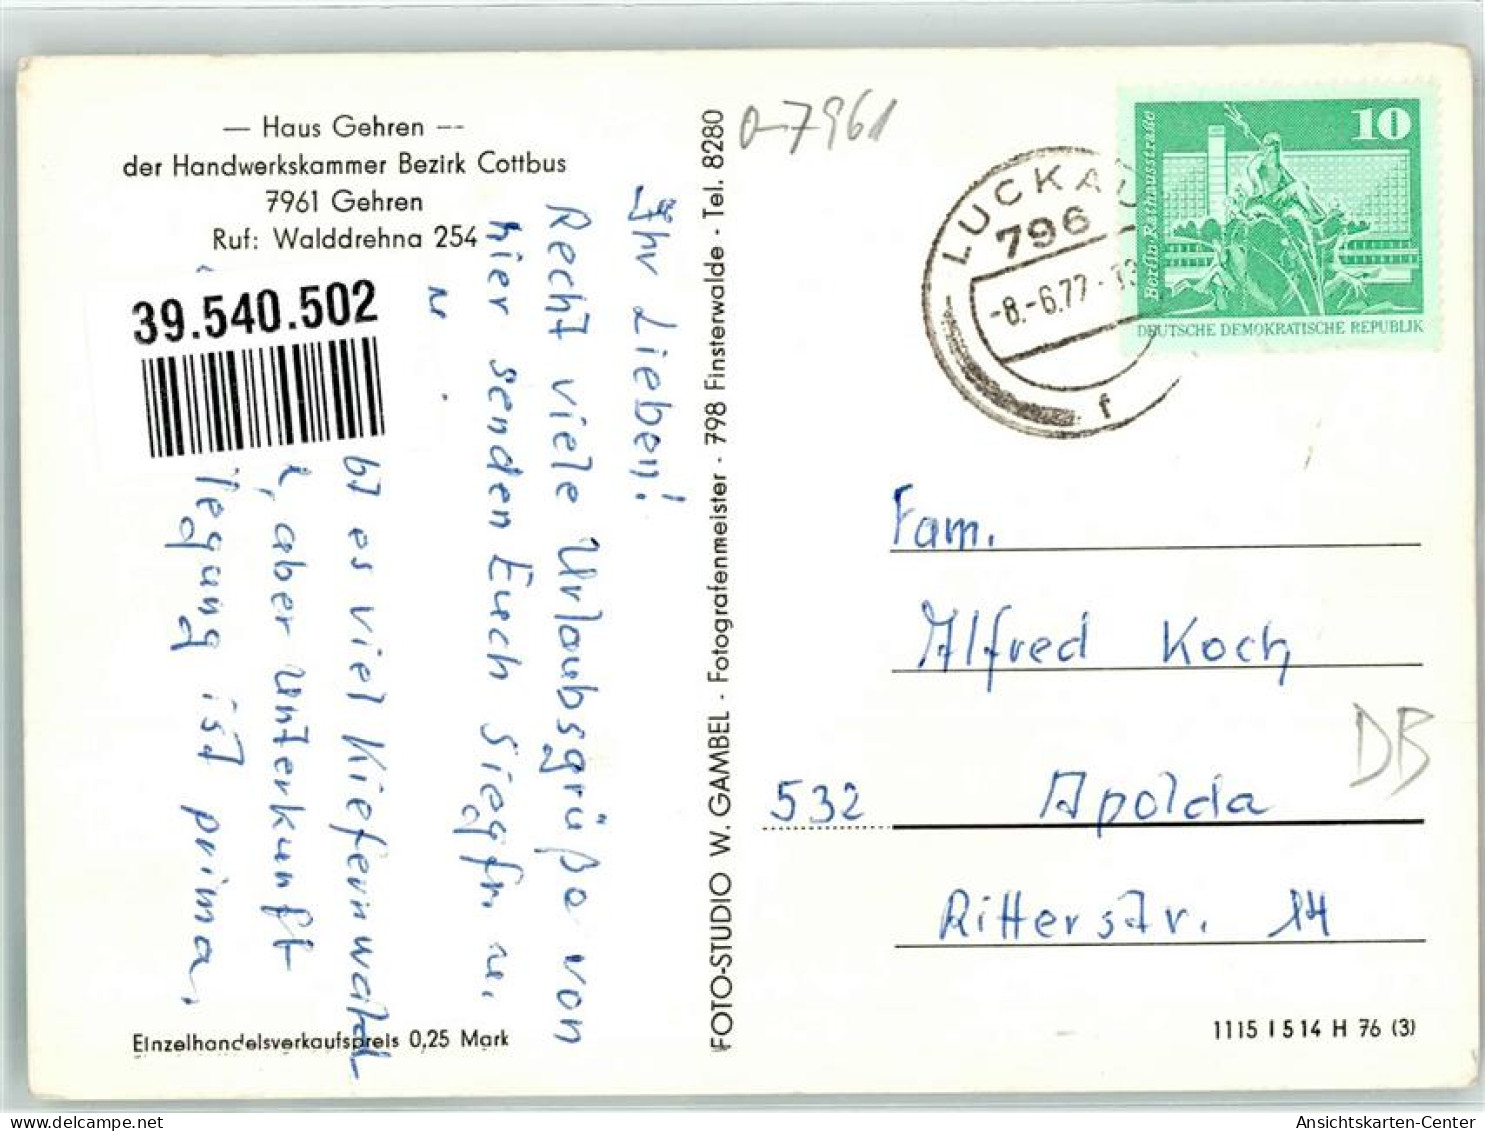 — Haus Gehren —
der Handwerkskammer Bezirk Cottbus
7961 Gehren
Ruf: Walddrehna 254
39.540.502
Ihr Lieben!
Recht viele Urlaubsgrüße von
hier senden Euch Siegfr. u.
bt es viel Kiefernwald
, aber Unterkunft
legung ist prima.
Einzelhandelsverkaufspreis 0,25 Mark
FOTO-STUDIO W. GAMBEL · Fotografenmeister · 798 Finsterwalde · Tel. 8280
0-7961
LUCKAU
796
-8.-6.77-13
f
10
Berlin-Rathausstraße
DEUTSCHE DEMOKRATISCHE REPUBLIK
Fam.
Alfred Koch
DB
532 Apolda
Ritterstr. 14
1115 I 514 H 76 (3)
Ansichtskarten-Center